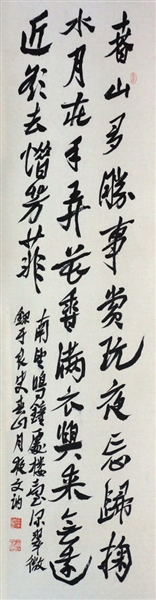 春山多勝事賞玩夜忘歸掬
水月在手弄花香滿衣興來無遠
近欲去惜芳菲
南望鳴鐘處樓臺深翠微
錄于良史春山月夜文